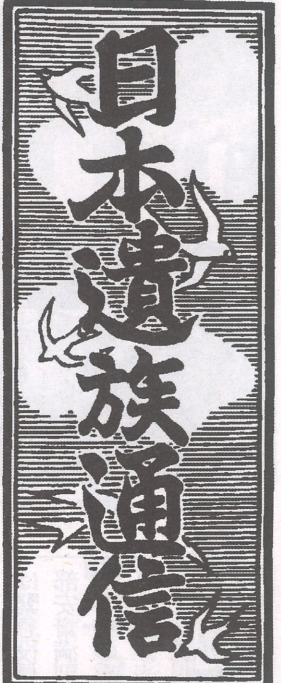 日本遺族通信